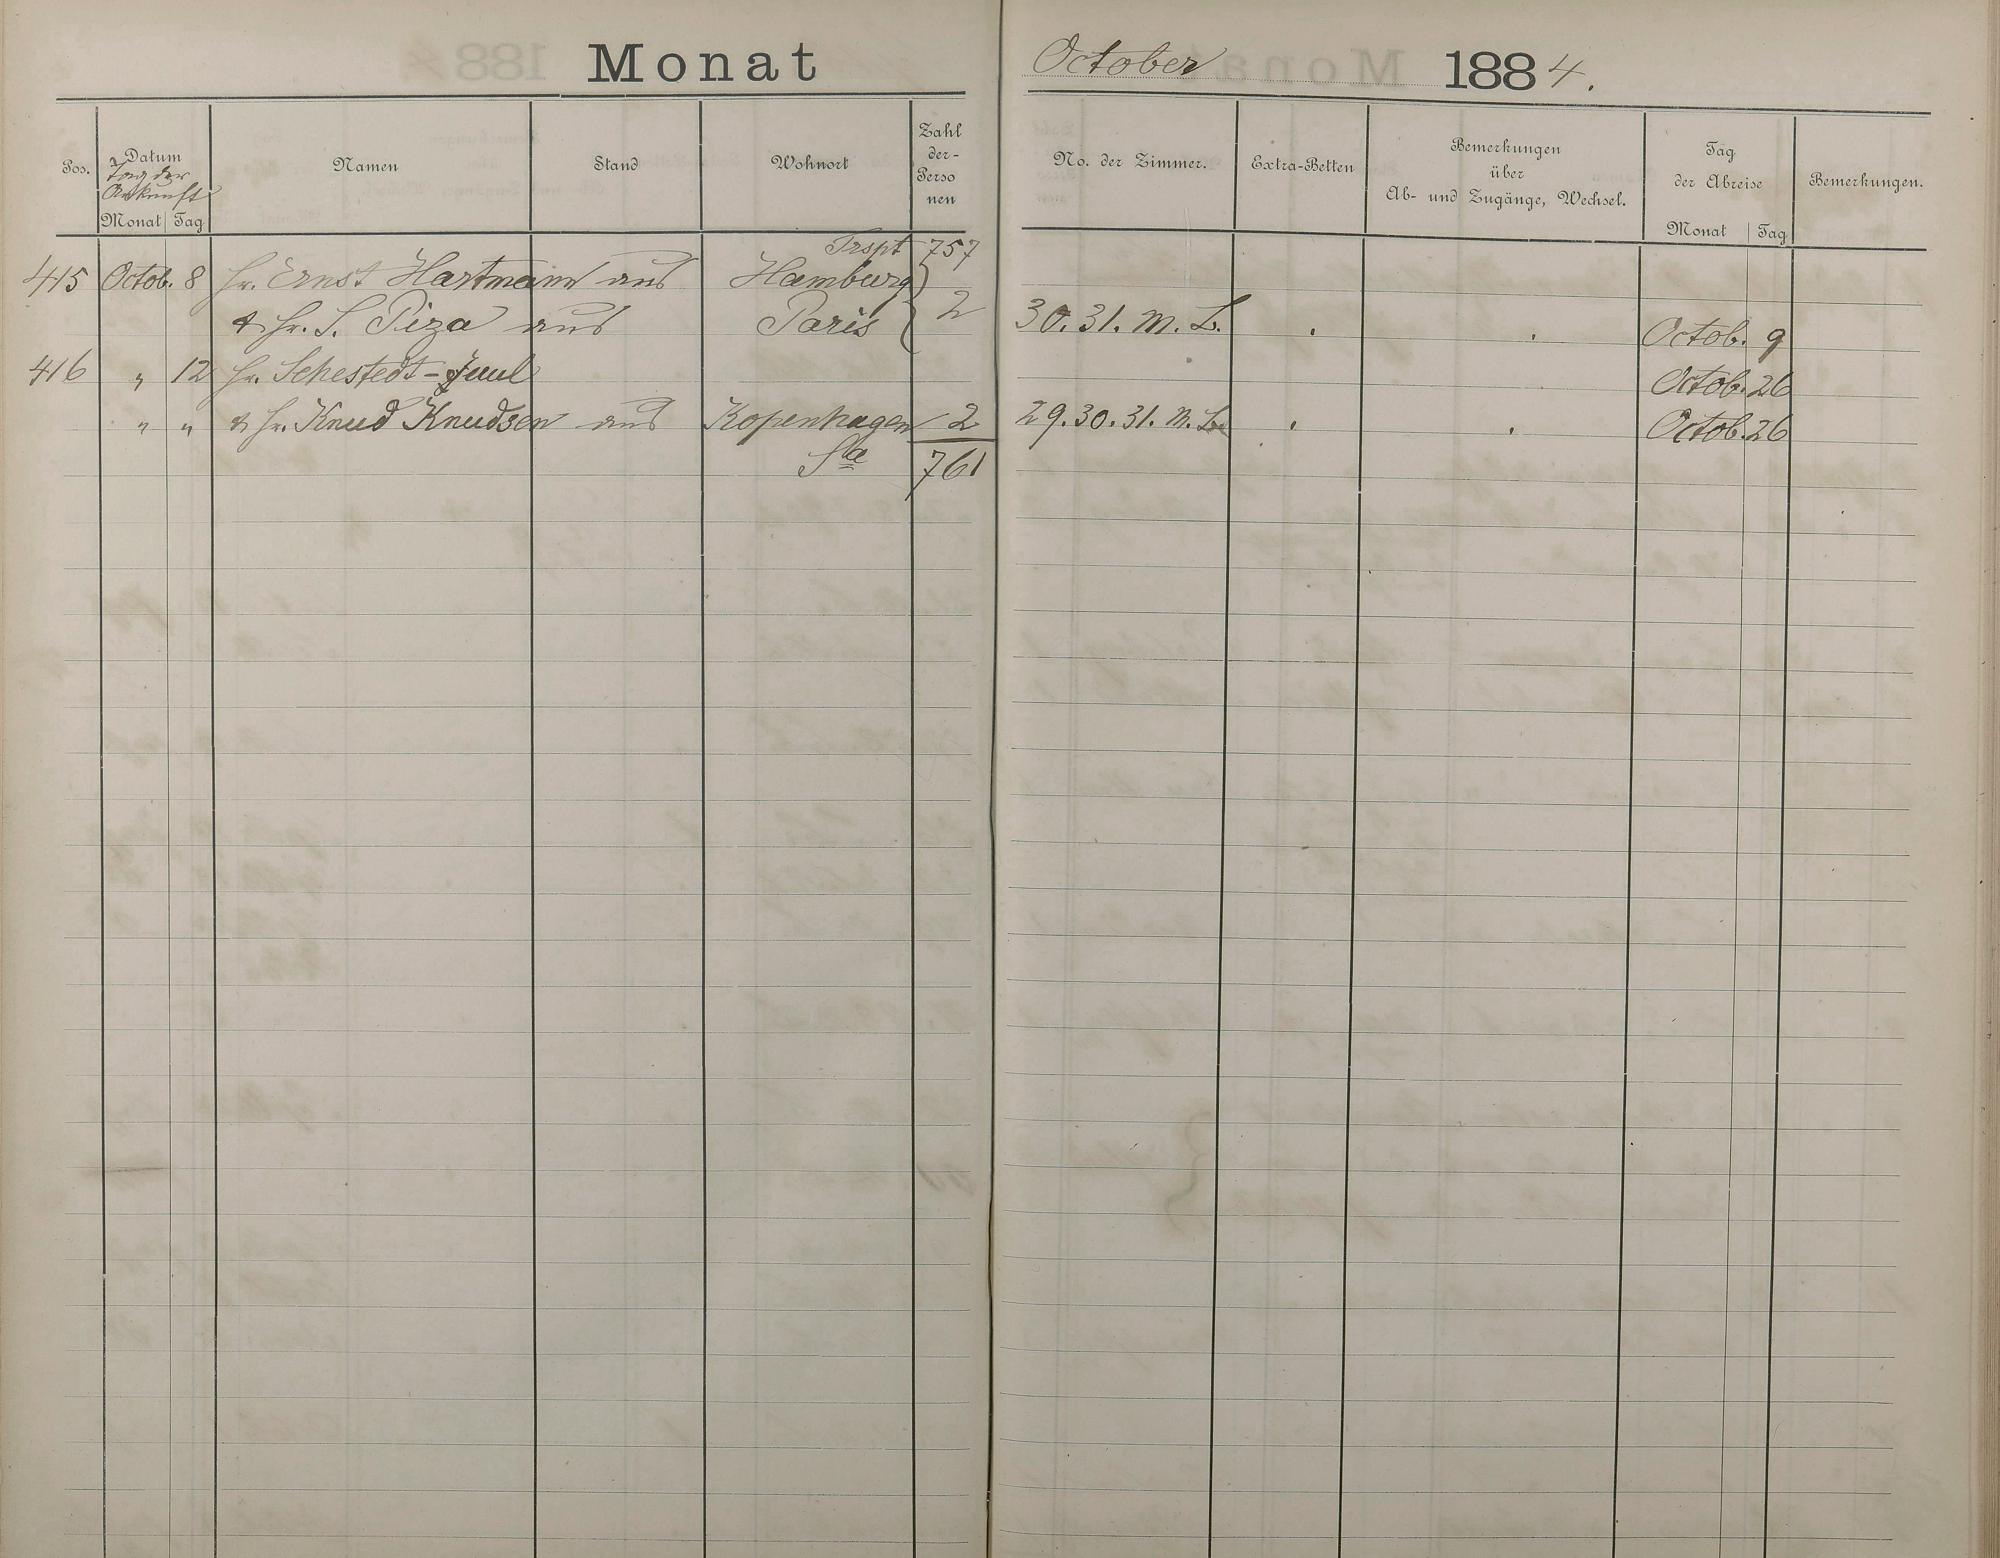 Monat October 1884.
Pos. Datum Tag der Ankunft Monat Tag Namen Stand Wohnort Zahl der Perso nen No. der Zimmer. Extra-Betten Bemerkungen über Ab- und Zugänge, Wechsel. Tag der Abreise Monat Tag Bemerkungen.
Trspt 757
415 Octob. 8 Hr. Ernst Hartmann aus Hamburg
& Hr. S. Piza aus Paris } 2 30. 31. m. L. Octob. 9
416 " 12 Hr. Sehestedt-Juul Octob. 26
" " & Hr. Knud Knudsen aus Kopenhagen 2 29. 30. 31. m. L. Octob. 26
Sa 761